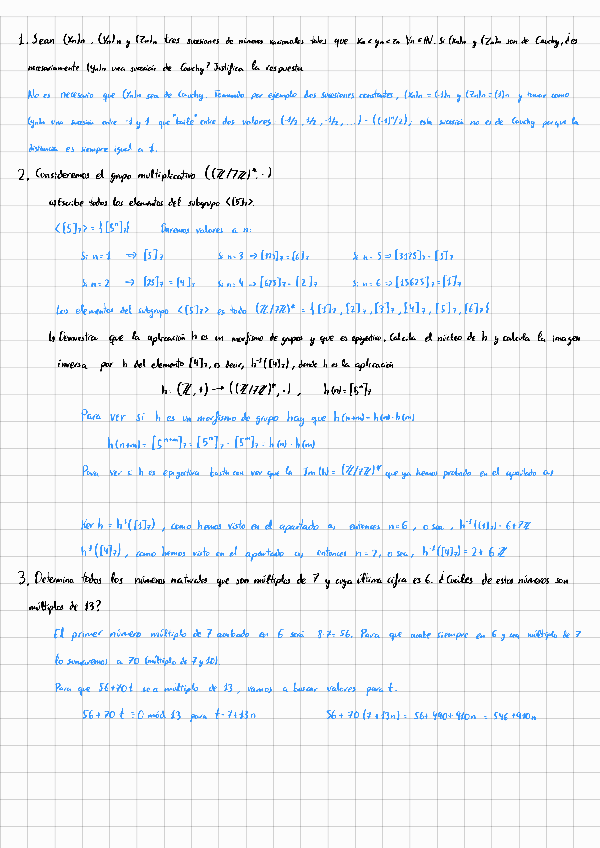 1. Sean (Xn)n, (Yn)n y (Zn)n tres sucesiones de números racionales tales que xn < yn < zn ∀n ∈ ℕ. Si (Xn)n y (Zn)n son de Cauchy, ¿es
necesariamente (Yn)n una sucesión de Cauchy? Justifica la respuesta
No es necesario que (Yn)n sea de Cauchy. Tomando por ejemplo dos sucesiones constantes, (Xn)n = (-1)n y (Zn)n = (1)n y tomar como
(Yn)n una sucesión entre -1 y 1 que "baile" entre dos valores (-1/2, 1/2, -1/2, ...) = ((-1)^n/2), esta sucesión no es de Cauchy porque la
distancia es siempre igual a 1.
2. Consideremos el grupo multiplicativo ((ℤ/7ℤ)*, ·)
a) Escribe todos los elementos del subgrupo <[5]₇>.
<[5]₇> = {[5^n]₇} Daremos valores a n:
Si n=1 ⇒ [5]₇ Si n=3 ⇒ [125]₇ = [6]₇ Si n=5 ⇒ [3125]₇ = [3]₇
Si n=2 ⇒ [25]₇ = [4]₇ Si n=4 ⇒ [625]₇ = [2]₇ Si n=6 ⇒ [15625]₇ = [1]₇
Los elementos del subgrupo <[5]₇> es todo (ℤ/7ℤ)* = {[1]₇, [2]₇, [3]₇, [4]₇, [5]₇, [6]₇}
b) Demuestra que la aplicación h es un morfismo de grupos y que es epiyectivo. Calcula el núcleo de h y calcula la imagen
inversa por h del elemento [4]₇, es decir, h⁻¹([4]₇), donde h es la aplicación
h: (ℤ, +) → ((ℤ/7ℤ)*, ·), h(n) = [5^n]₇
Para ver si h es un morfismo de grupo hay que h(n+m) = h(n)·h(m)
h(n+m) = [5^{n+m}]₇ = [5^n]₇ · [5^m]₇ = h(n)·h(m)
Para ver si h es epiyectiva basta con ver que la Im(h) = (ℤ/7ℤ)* que ya hemos probado en el apartado a)
Ker h = h⁻¹([1]₇), como hemos visto en el apartado a) entonces n=6, o sea, h⁻¹([1]₇) = 6+7ℤ
h⁻¹([4]₇), como hemos visto en el apartado a) entonces n=2, o sea, h⁻¹([4]₇) = 2+6ℤ
3. Determina todos los números naturales que son múltiplos de 7 y cuya última cifra es 6. ¿Cuáles de estos números son
múltiplos de 13?
El primer número múltiplo de 7 acabado en 6 será 8·7=56. Para que acabe siempre en 6 y sea múltiplo de 7
lo sumaremos a 70 (múltiplo de 7 y 10).
Para que 56+70t sea múltiplo de 13, vamos a buscar valores para t.
56+70t ≡ 0 mód 13 para t=7+13n 56+70(7+13n) = 56+490+910n = 546+910n